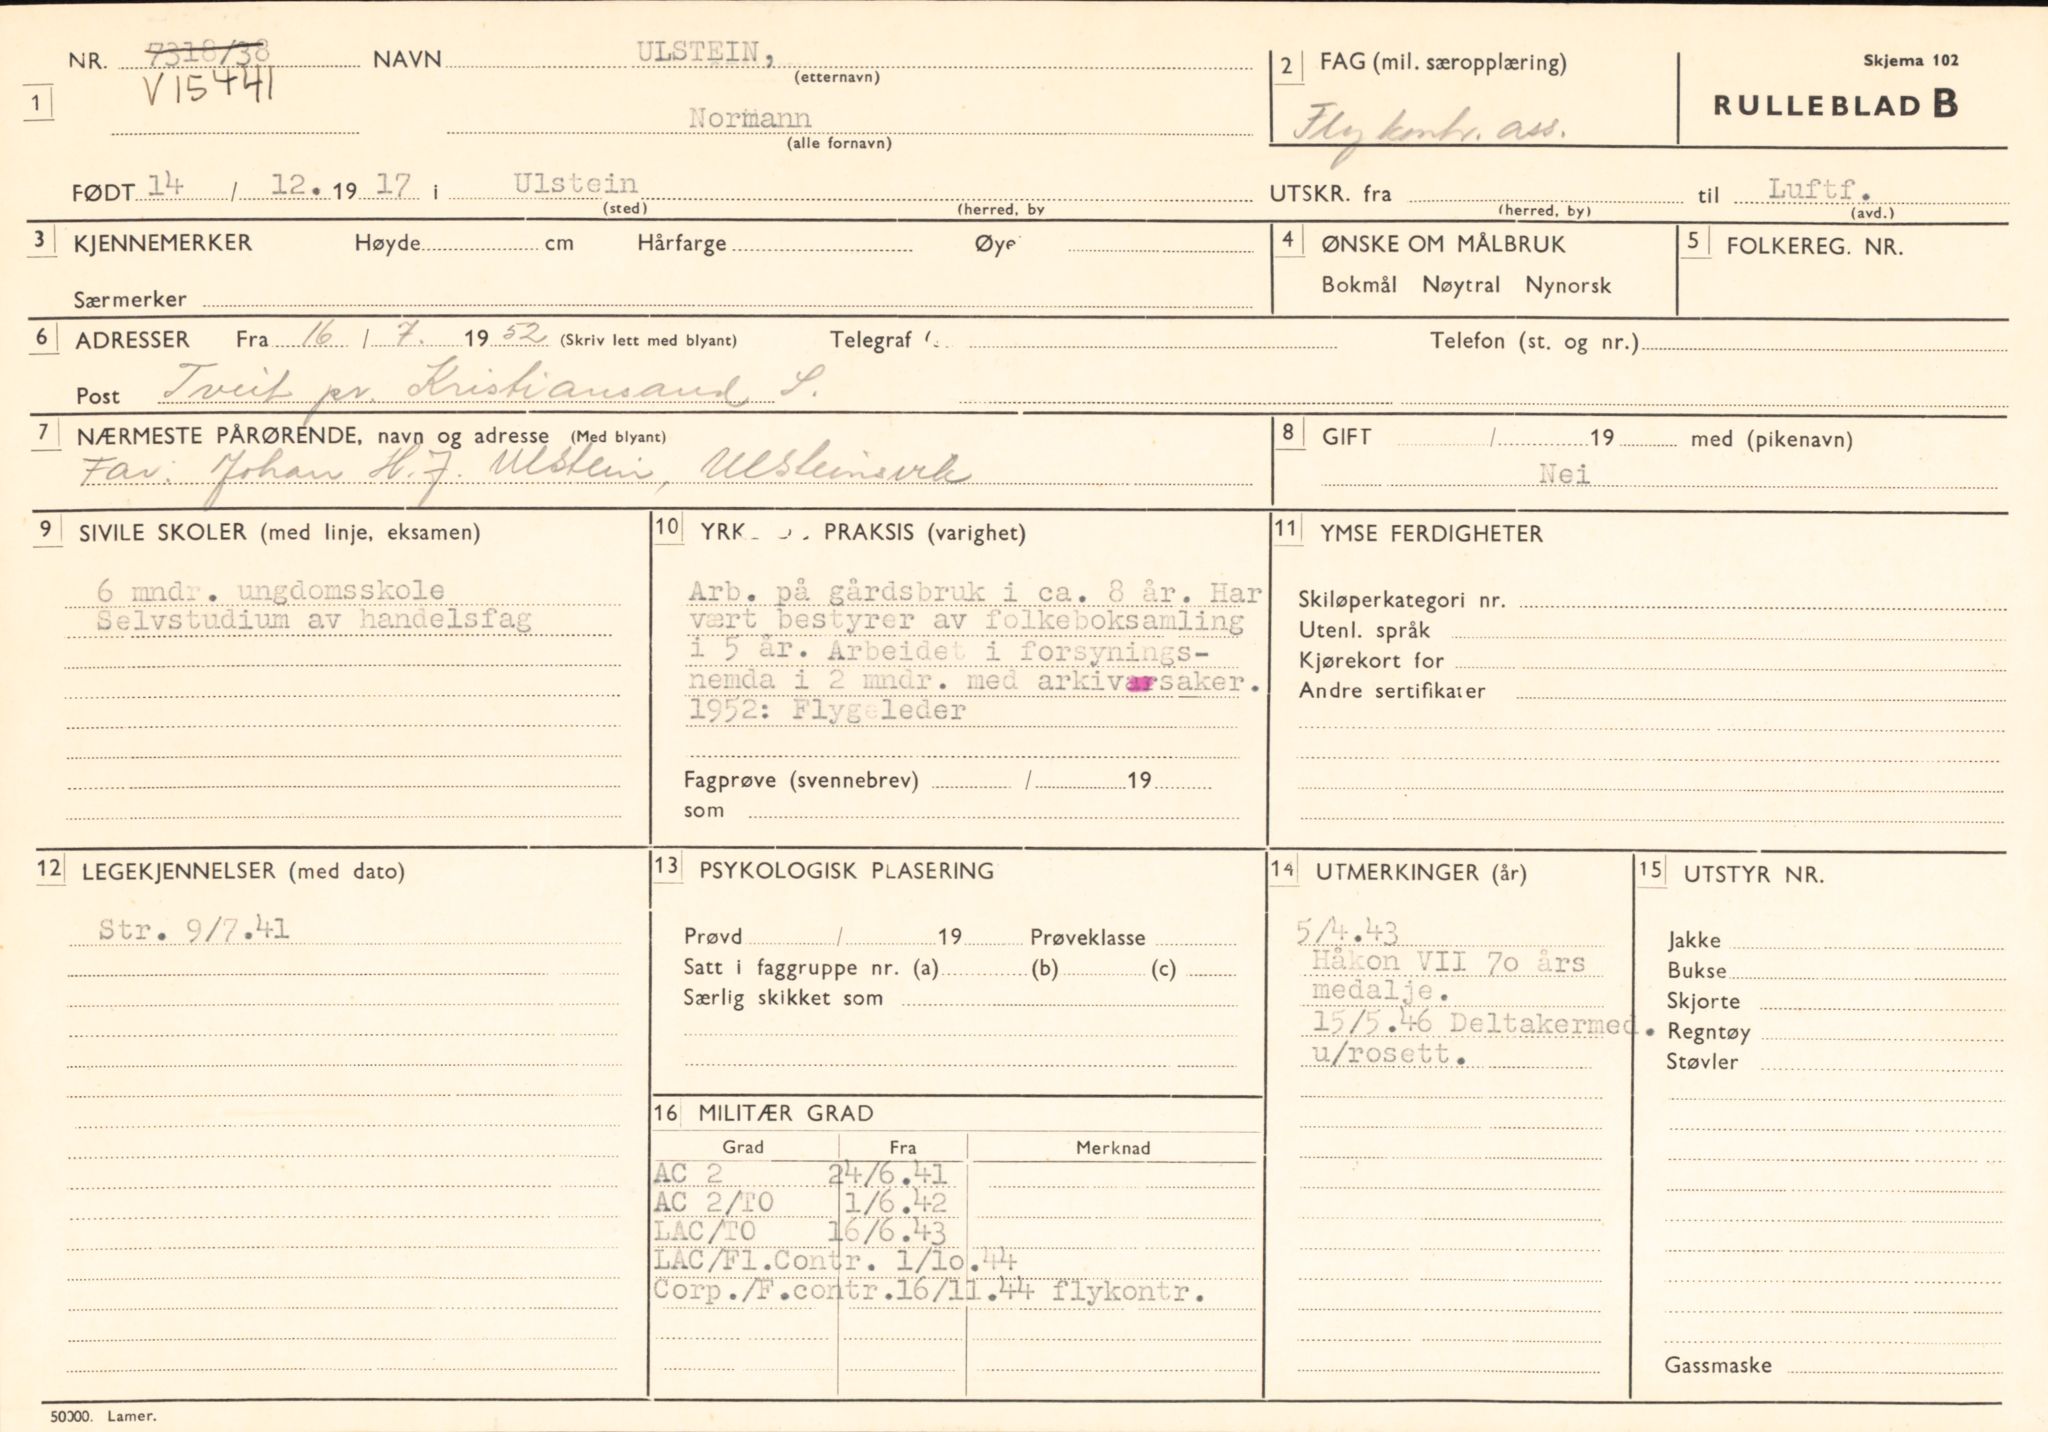 NR. 7318/38 NAVN ULSTEIN,
(etternavn)
V15441
1
Normann
(alle fornavn)
2 FAG (mil. særopplæring)
Flykontr. ass.
Skjema 102
RULLEBLAD B
FØDT 14 / 12. 19 17 i Ulstein
(sted) (herred, by
UTSKR. fra til Luftf.
(herred, by) (avd.)
3 KJENNEMERKER Høyde cm Hårfarge Øye
Særmerker
4 ØNSKE OM MÅLBRUK
Bokmål Nøytral Nynorsk
5 FOLKEREG. NR.
6 ADRESSER Fra 16 / 7. 19 52 (Skriv lett med blyant) Telegraf Telefon (st. og nr.)
Post Tveit pr. Kristiansand S.
7 NÆRMESTE PÅRØRENDE, navn og adresse (Med blyant)
Far: Johan H.J. Ulstein, Ulsteinsvik
8 GIFT / 19 med (pikenavn)
Nei
9 SIVILE SKOLER (med linje, eksamen)
6 mndr. ungdomsskole
Selvstudium av handelsfag
10 YRK PRAKSIS (varighet)
Arb. på gårdsbruk i ca. 8 år. Har
vært bestyrer av folkeboksamling
i 5 år. Arbeidet i forsynings-
nemda i 2 mndr. med arkivarsaker.
1952: Flygeleder
Fagprøve (svennebrev) / 19
som
11 YMSE FERDIGHETER
Skiløperkategori nr.
Utenl. språk
Kjørekort for
Andre sertifikater
12 LEGEKJENNELSER (med dato)
Str. 9/7.41
13 PSYKOLOGISK PLASERING
Prøvd / 19 Prøveklasse
Satt i faggruppe nr. (a) (b) (c)
Særlig skikket som
14 UTMERKINGER (år)
5/4.43
Håkon VII 7o års
medalje.
15/5.46 Deltakermed.
u/rosett.
15 UTSTYR NR.
Jakke
Bukse
Skjorte
Regntøy
Støvler
Gassmaske
16 MILITÆR GRAD
Grad Fra Merknad
AC 2 24/6.41
AC 2/TO 1/6.42
LAC/TO 16/6.43
LAC/Fl.Contr. 1/1o.44
Corp./F.contr.16/11.44 flykontr.
50000. Lamer.